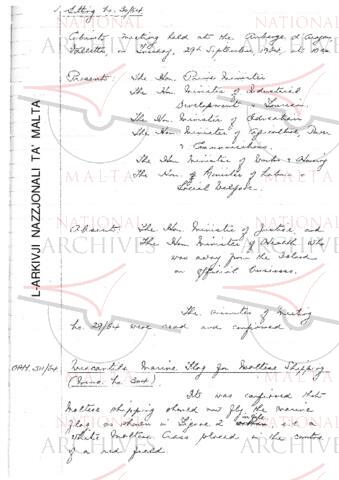 Sitting No. 30/64
Cabinet meeting held at the Auberge d'Aragon,
Valletta, on Tuesday, 29th September, 1964 at
Present: The Hon. Prime Minister
The Hon. Minister of Industrial
Development & Tourism.
The Hon. Minister of Education
The Hon. Minister of Agriculture, Power
& Communications.
The Hon. Minister of Works & Housing
The Hon. Minister of Labour &
Social Welfare.
Absent: The Hon. Minister of Justice, and
The Hon. Minister of Health who
was away from the Island
on official business.
The minutes of meeting
No. 29/64 were read and confirmed
OPM. 311/64 Mercantile Marine Flag for Maltese Shipping
(Memo. No. 304).
It was confirmed that
Maltese shipping should now fly the marine
flag as shown in figure 2 i.e. a
white Maltese Cross placed in the centre
of a red field.
L-ARKIVJI NAZZJONALI TA' MALTA
NATIONAL
ARCHIVES
NATIONAL
ARCHIVES
NATIONAL
ARCHIVES
NATIONAL
ARCHIVES